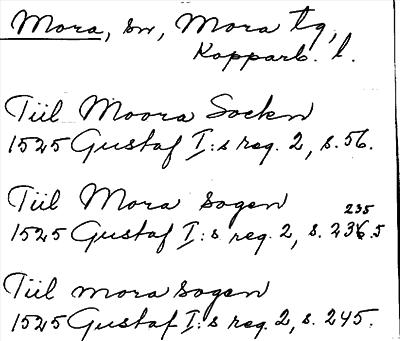 Mora, sn, Mora tg,
Kopparb. l.
Till Moora Sockn
1525 Gustaf I:s reg. 2, s. 56.
Till Mora sogen
235
1525 Gustaf I:s reg. 2, s. 236.5
Till mora sogen
1525 Gustaf I:s reg. 2, s. 245.